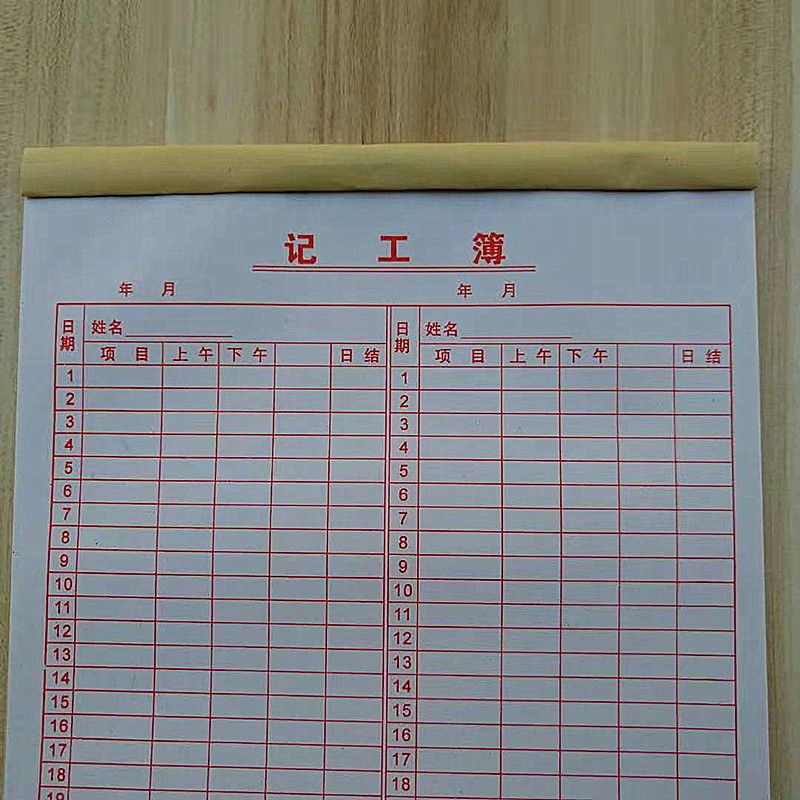 记工簿
年 月 年 月
日期 姓名 日期 姓名
项目 上午 下午 日结 项目 上午 下午 日结
1 1
2 2
3 3
4 4
5 5
6 6
7 7
8 8
9 9
10 10
11 11
12 12
13 13
14 14
15 15
16 16
17 17
18 18
19